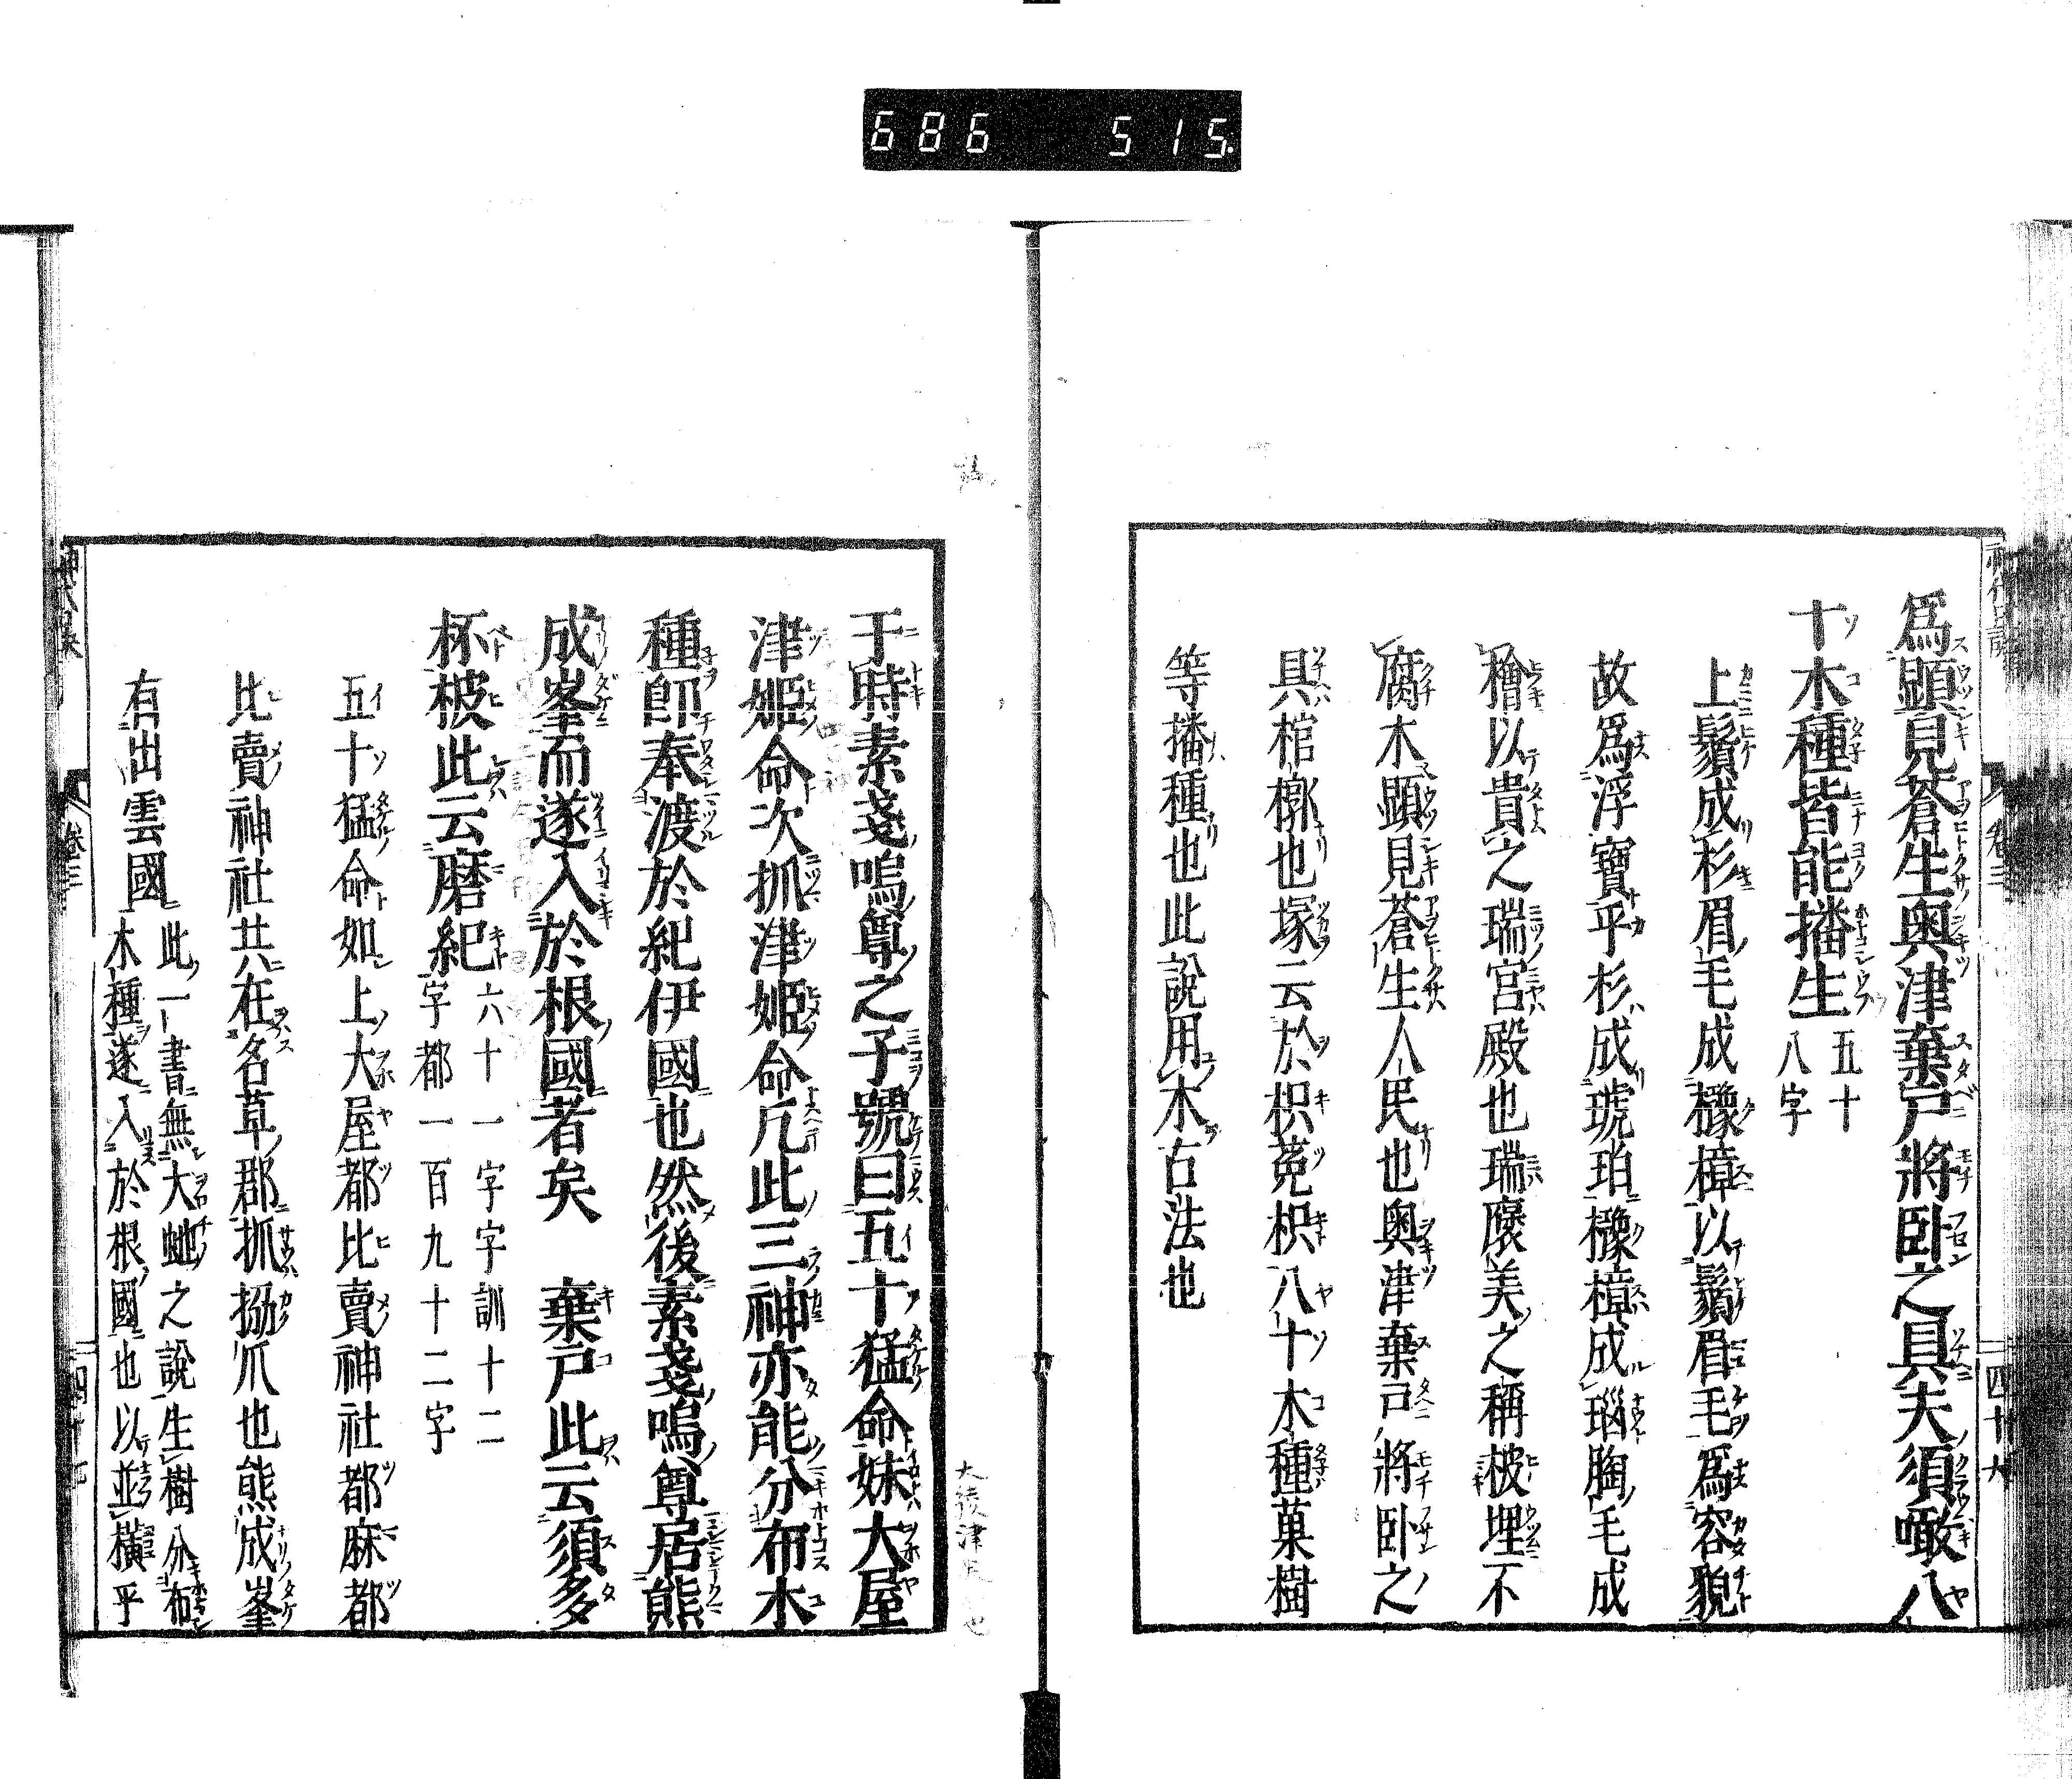 686 515.
爲顯見蒼生奥津棄戸將卧之具夫須噉八
十木種皆能播生 五十
八字
上鬚成杉眉毛成櫲樟以鬚眉毛爲容貌
故爲浮寶乎杉成琥珀櫲樟成瑙胸毛成
檜以貴之瑞宮殿也瑞褒美之稱柀埋不
腐木顯見蒼生人民也奥津棄戸將卧之
具棺槨也塚云於枳莬枳八十木種菓樹
等播種也此說用木古法也
于時素戔嗚尊之子號曰五十猛命妹大屋
津姬命次抓津姬命凡此三神亦能分布木
種卽奉渡於紀伊國也然後素戔嗚尊居熊
成峯而遂入於根國者矣 棄戸此云須多
杯柀此云磨紀 六十一字字訓十二
字都一百九十二字
五十猛命如上大屋都比賣神社都麻都
比賣神社共在名草郡抓搦爪也熊成峯
有出雲國 此一書無大虵之說生樹分布
木種遂入於根國也以並橫乎
卷三